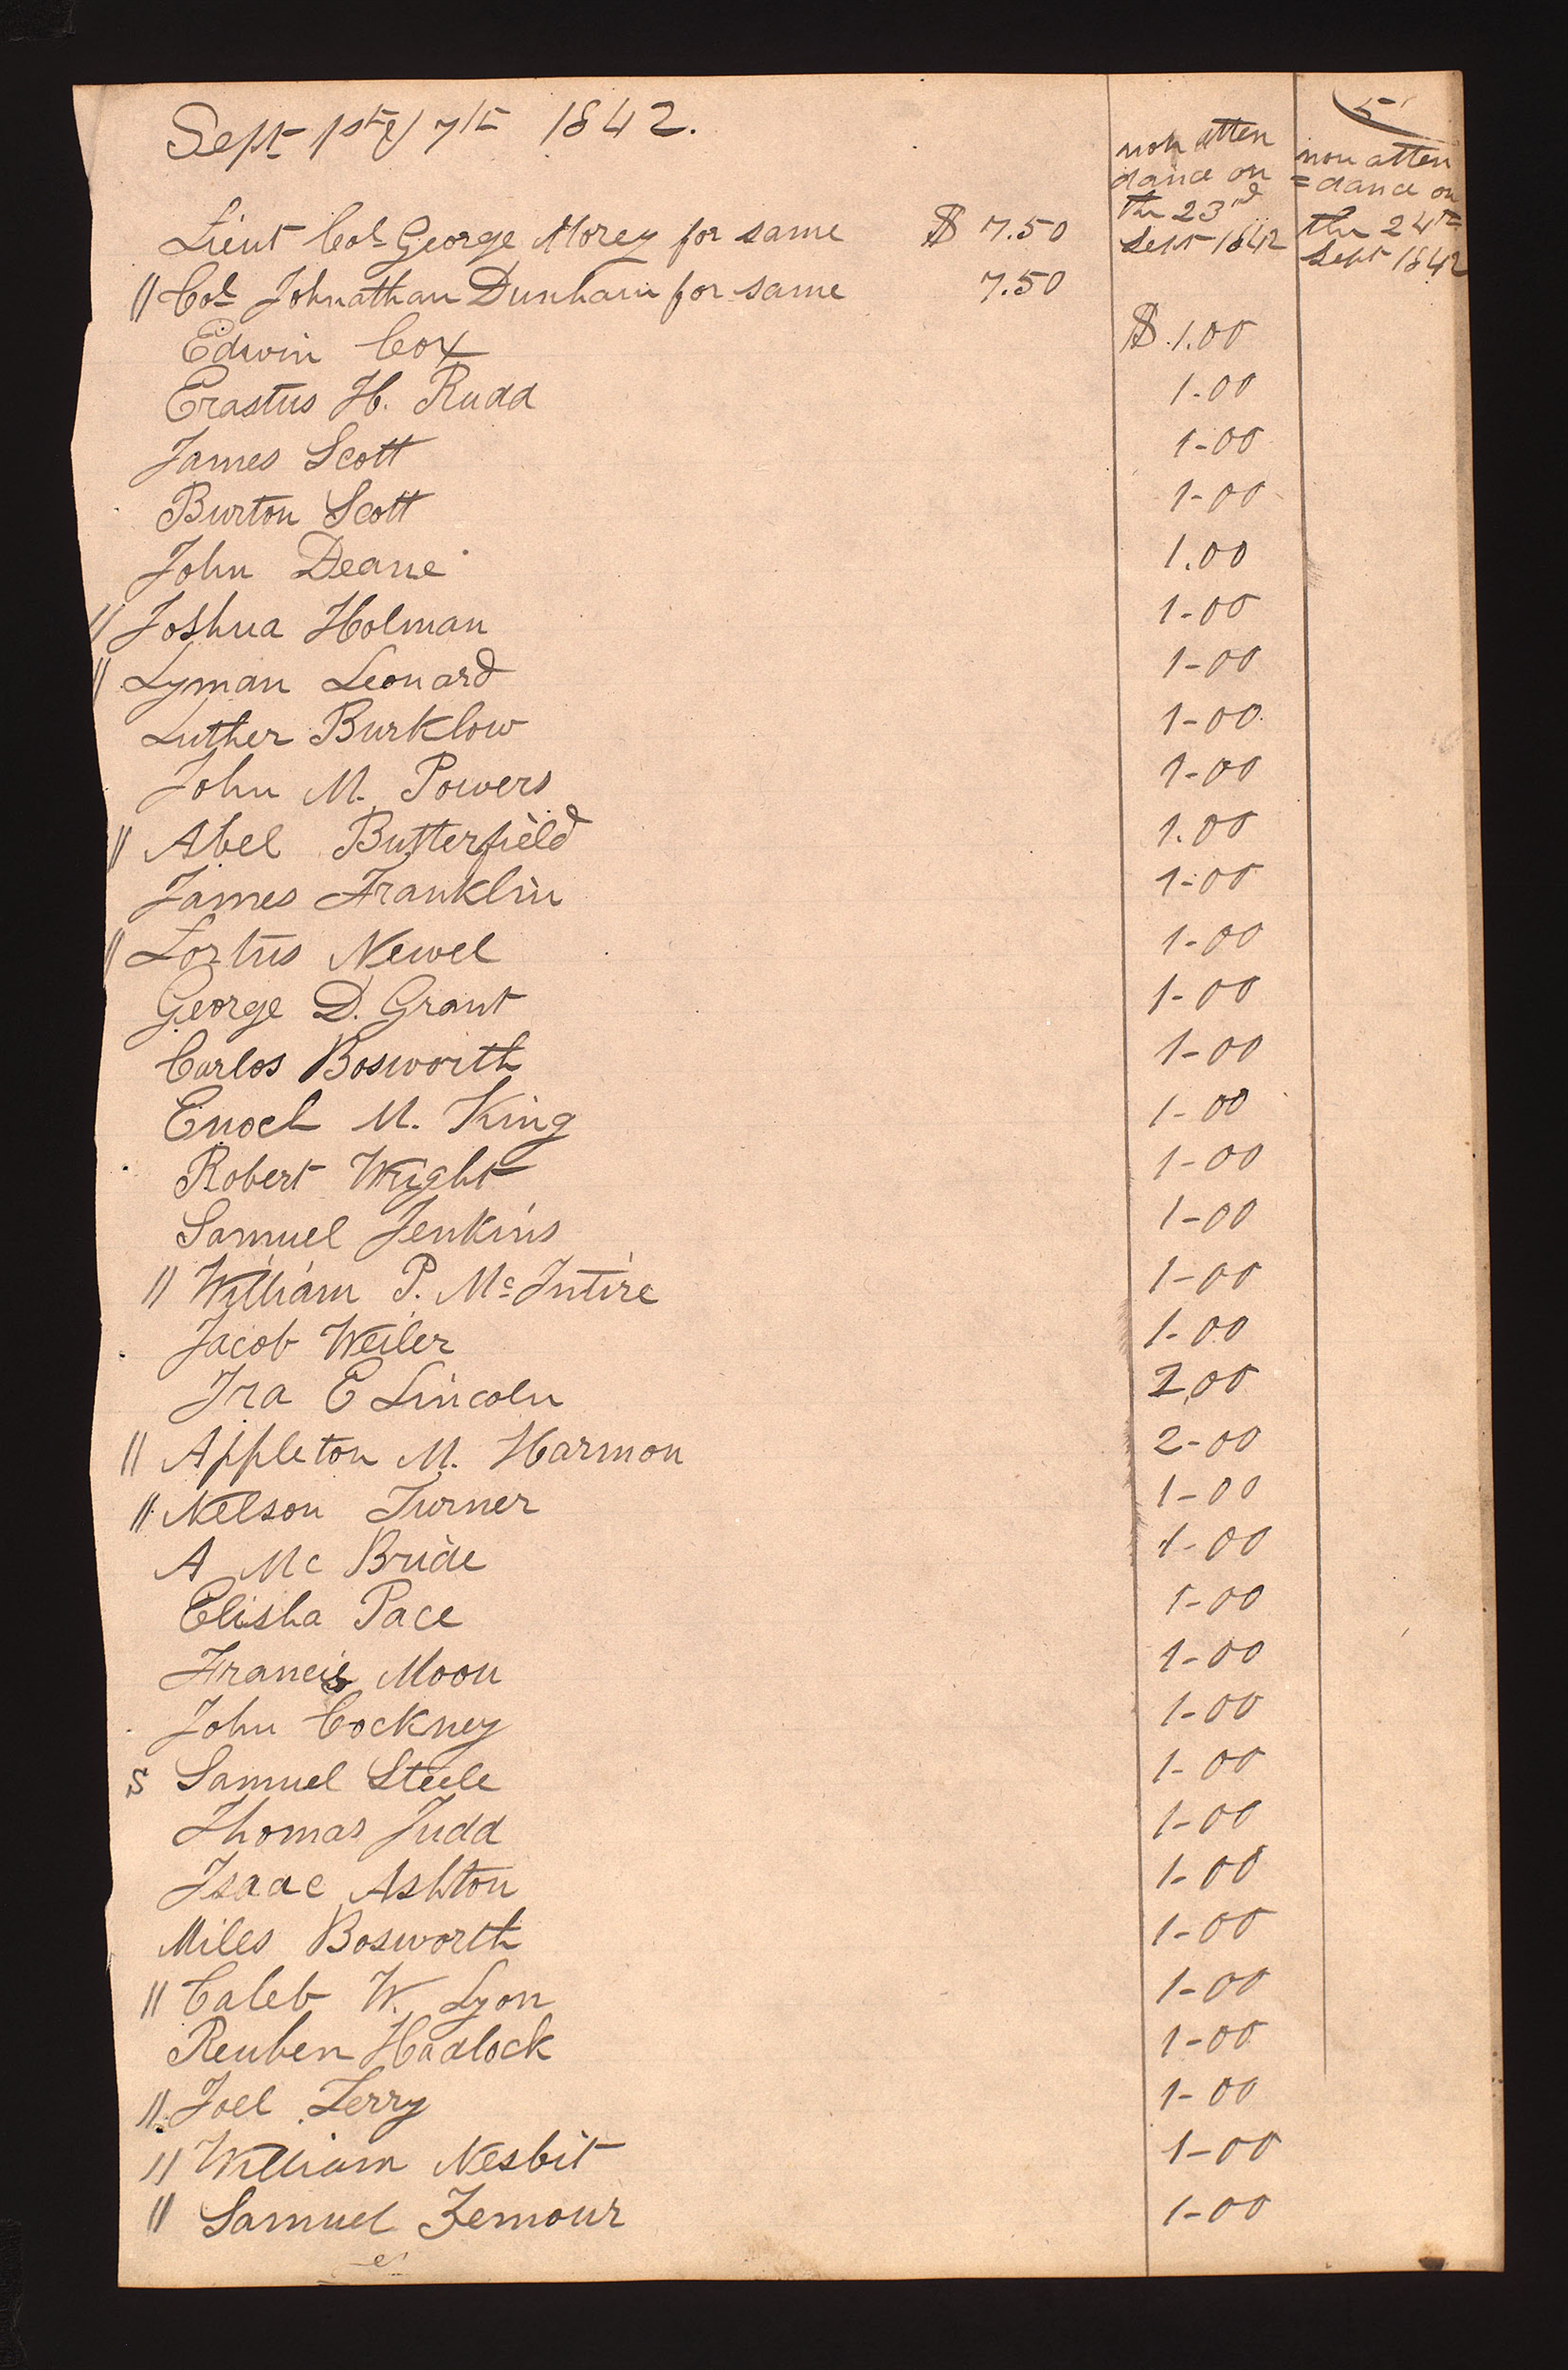 5
Sept 1st & 7th 1842.
non atten
dance on
the 23rd
Sept 1842
non atten
=dance on
the 24th
Sept 1842
Lieut Col George Morey for same $ 7.50
" Col Johnathan Dunham for same 7.50
Edwin Cox $ 1.00
Erastus H. Rudd 1-00
James Scott 1-00
Burton Scott 1-00
John Deane 1.00
" Joshua Holman 1-00
" Lyman Leonard 1-00
Luther Burklow 1-00
John M. Powers 1-00
" Abel Butterfield 1.00
James Franklin 1-00
" Newel 1-00
George D. Grant 1-00
Carlos Bosworth 1-00
Enoch M. King 1-00
Robert Wright 1-00
Samuel Jenkins 1-00
" William P. McIntire 1-00
Jacob Weiler 1-00
Ira E Lincoln 2,00
" Appleton M. Harmon 2-00
" Nelson Turner 1-00
A Mc Bride 1-00
Elisha Pace 1-00
Francis Moon 1-00
John Cockney 1-00
S Samuel Steele 1-00
Thomas Judd 1-00
Isaac Ashton 1-00
Miles Bosworth 1-00
" Caleb W. Lyon 1-00
Reuben Hadlock 1-00
" Joel Terry 1-00
" William Nesbit 1-00
" Samuel Zemour 1-00